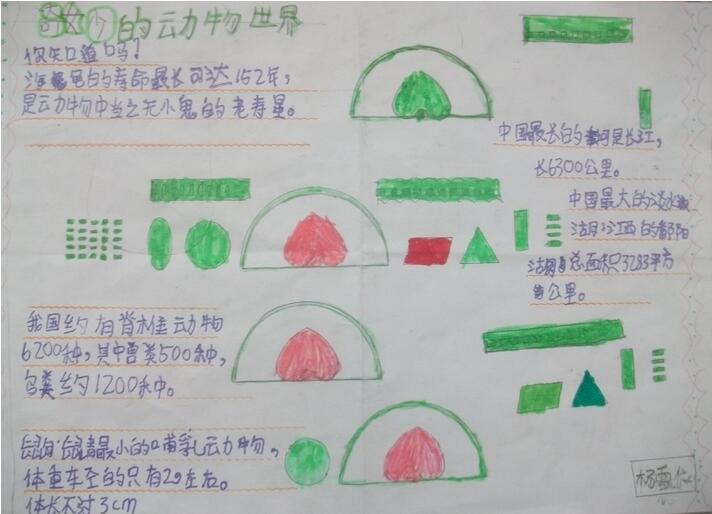 奇妙的动物世界
你知道吗?
海龟的寿命最长可达152年,
是动物中当之无愧的老寿星。
中国最长的河是长江,
长6300公里。
中国最大的淡水
湖江西的鄱阳
湖总面积3283平方
公里。
我国约有脊椎动物
6200种,其中兽类500种,
鸟类约1200种。
最小的哺乳动物,
体重轻的只有2g左右。
体长不过3cm
杨雪